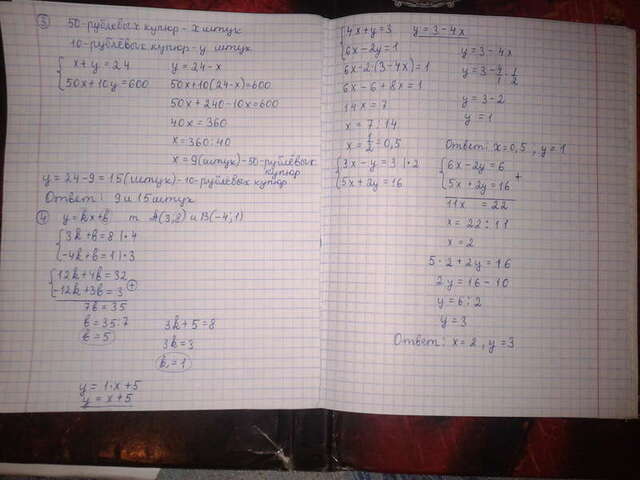 ③ 50-рублевых купюр - х штук
10-рублевых купюр - y штук
{ x + y = 24      y = 24 - x
50x + 10y = 600      50x + 10(24 - x) = 600
50x + 240 - 10x = 600
40x = 360
x = 360 : 40
x = 9 (штук) - 50-рублевых купюр
y = 24 - 9 = 15 (штук) - 10-рублевых купюр
Ответ: 9 и 15 штук
④ y = kx + b   т. A(3,8) и B(-4,1)
{ 3k + b = 8 | · 4
-4k + b = 1 | · 3
{ 12k + 4b = 32
-12k + 3b = 3 ⊕
7b = 35
b = 35 : 7      3k + 5 = 8
b = 5      3k = 3
k = 1
y = 1 · x + 5
y = x + 5
{ 4x + y = 3      y = 3 - 4x
6x - 2y = 1      y = 3 - 4x
6x - 2 · (3 - 4x) = 1      y = 3 - 4/1 · 1/2
6x - 6 + 8x = 1      y = 3 - 2
14x = 7      y = 1
x = 7 : 14
x = 1/2 = 0,5      Ответ: x = 0,5, y = 1
{ 3x - y = 3 | · 2      { 6x - 2y = 6
5x + 2y = 16      5x + 2y = 16 +
11x = 22
x = 22 : 11
x = 2
5 · 2 + 2y = 16
2y = 16 - 10
y = 6 : 2
y = 3
Ответ: x = 2, y = 3